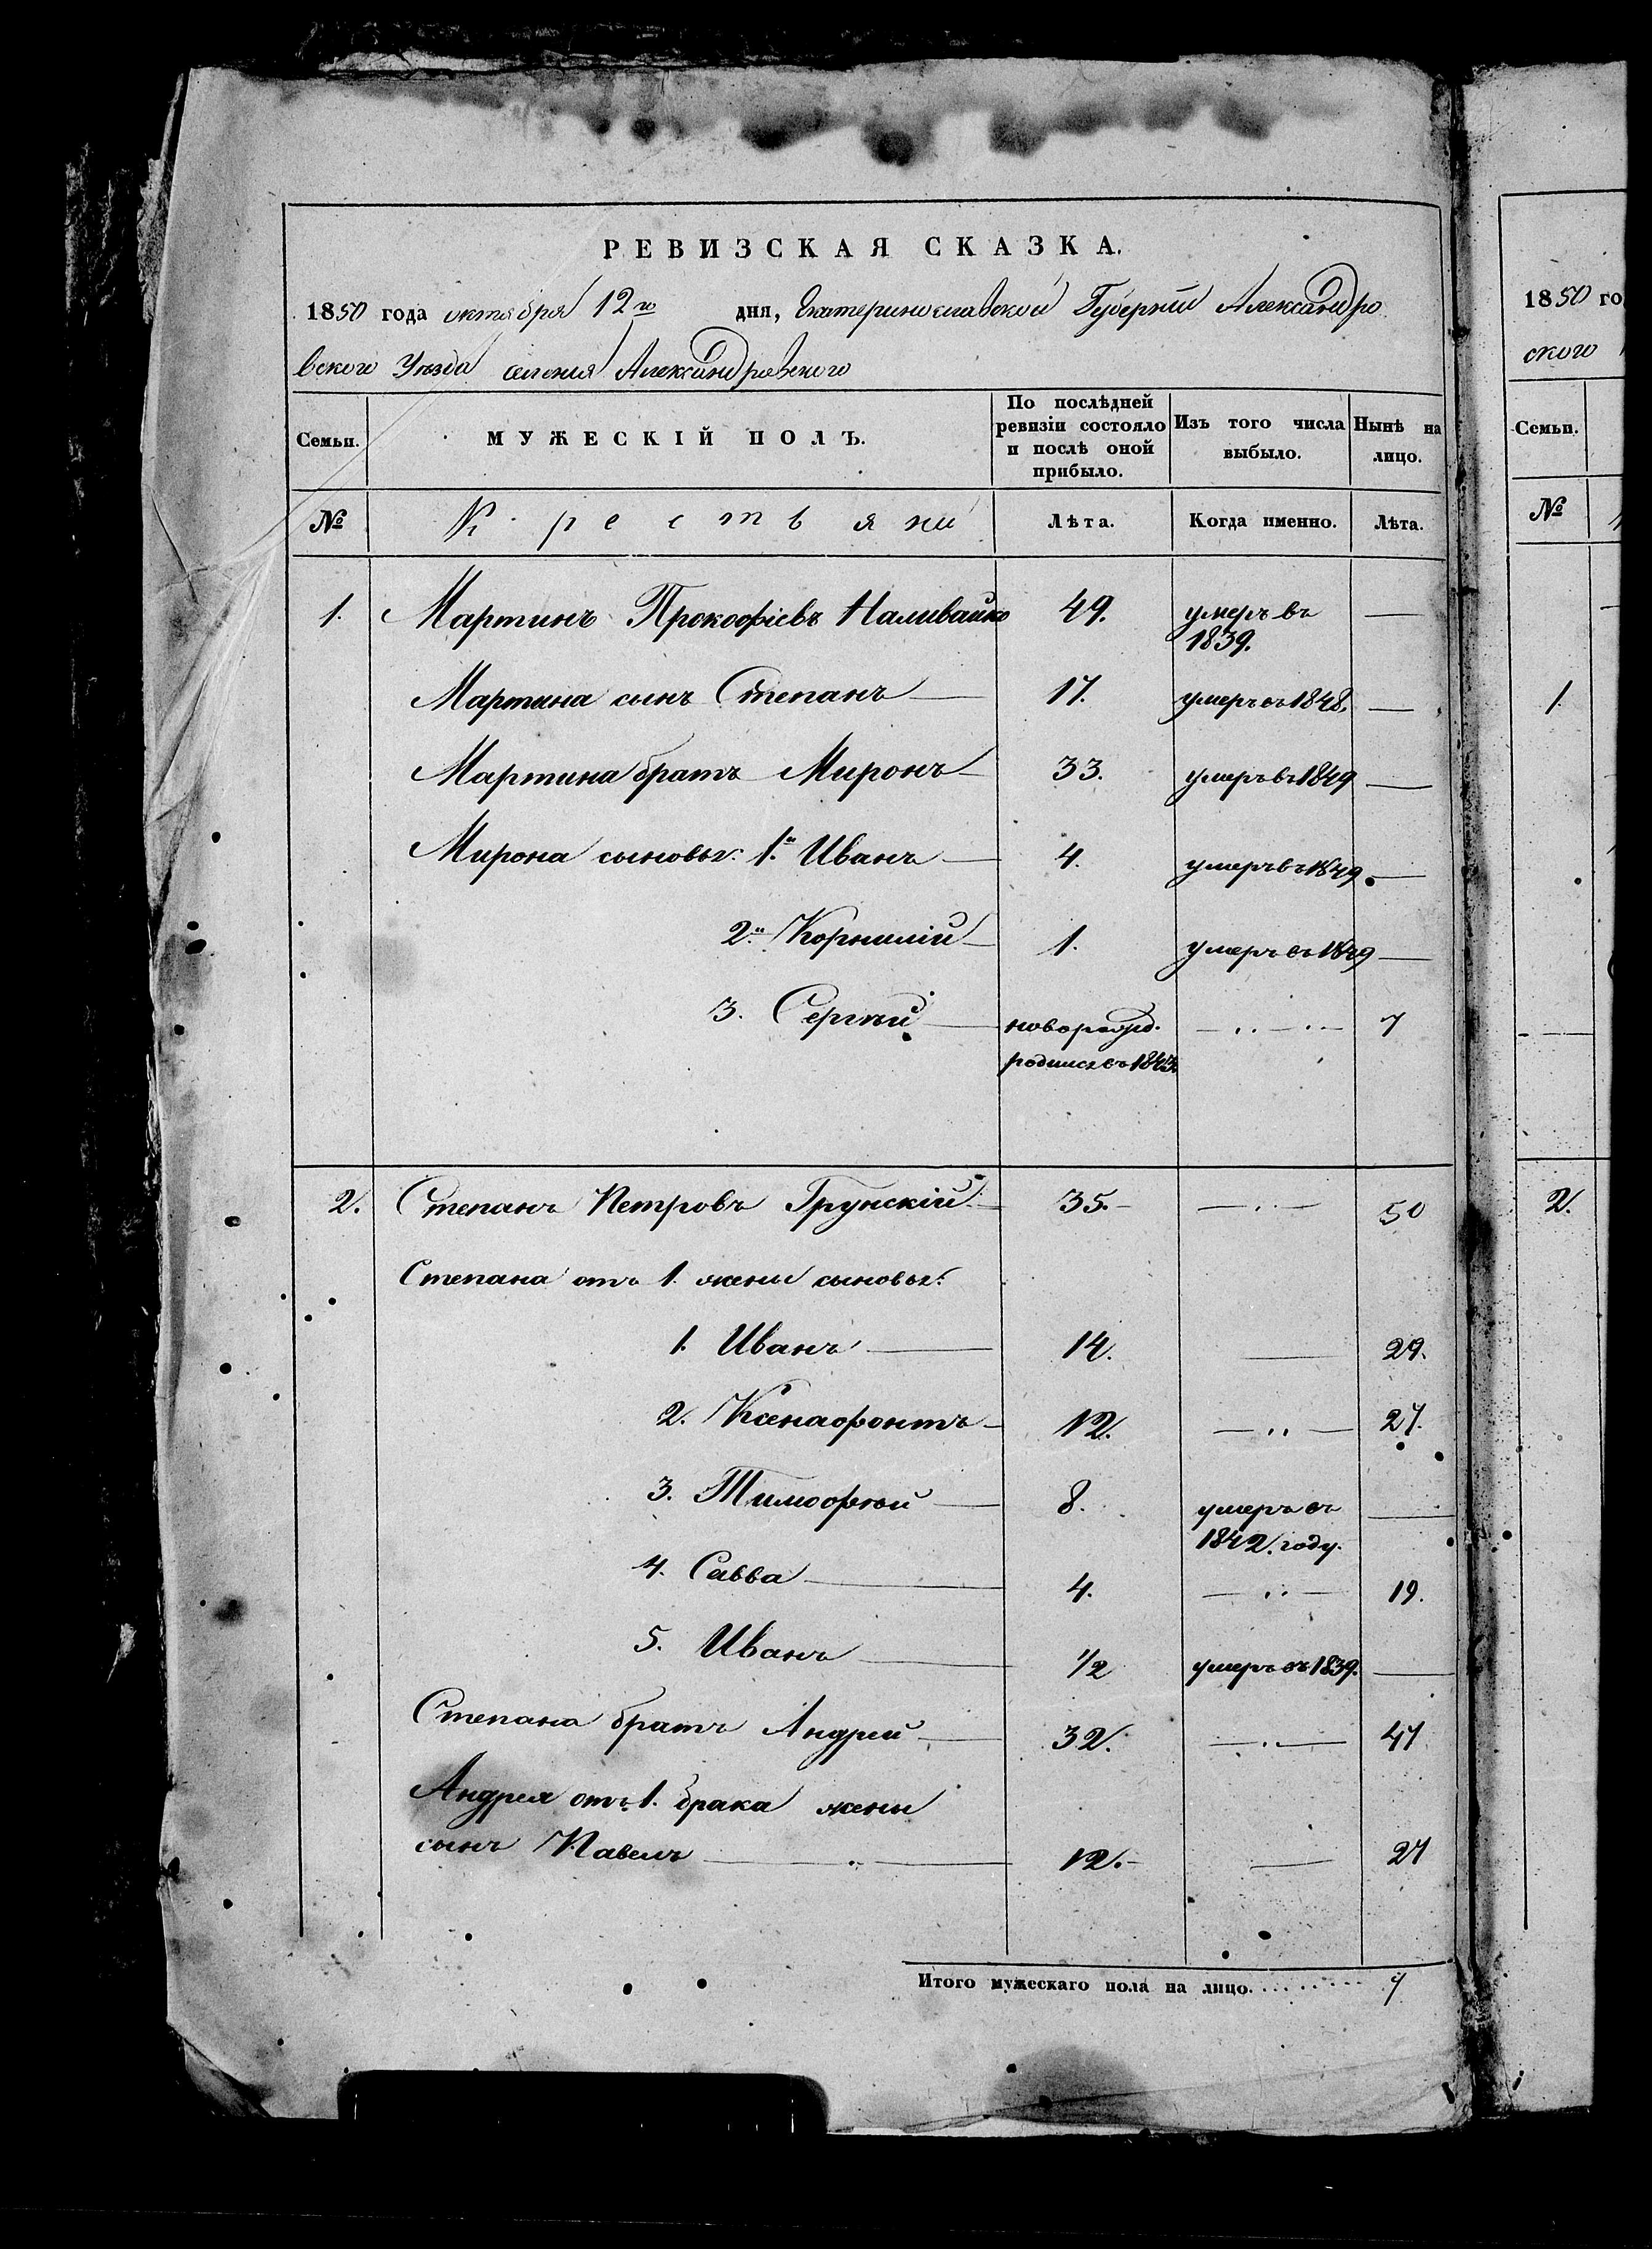 РЕВИЗСКАЯ СКАЗКА.
1850 года октября 12го дня, Екатеринославской Губерніи Александро
вского Уѣзда селенія Александровского
Семьи. МУЖЕСКІЙ ПОЛЪ. По послѣдней ревизіи состояло и послѣ оной прибыло. Изъ того числа выбыло. Нынѣ на лицо.
№ Крестьяни Лѣта. Когда именно. Лѣта.
1. Мартинъ Прокофіевъ Наливайко 49. умеръ въ 1839. —
Мартина сынъ Степанъ — 17. умеръ въ 1848. —
Мартина братъ Миронъ — 33. умеръ въ 1849 —
Мирона сыновья: 1.й Иванъ — 4. умеръ въ 1849. —
2.й Корнилій — 1. умеръ въ 1849 —
3. Сергѣй — новорожд. — 7
родился въ 1843.
2. Степанъ Петровъ Грунскій. — 35. — 50
Степана отъ 1. жены сыновья:
1. Иванъ — 14. — 29.
2. Ксенафонтъ — 12. — 27.
3. Тимофѣй — 8. умеръ въ —
1842. году.
4. Савва — 4. — 19.
5. Иванъ — 1/2 умеръ въ 1839. —
Степана братъ Андрей — 32. — 47
Андрея отъ 1. брака жены
сынъ Павелъ — 12. — 27
Итого мужескаго пола на лицо. 7
1850 го
ского
Семьи.
№
1.
2.